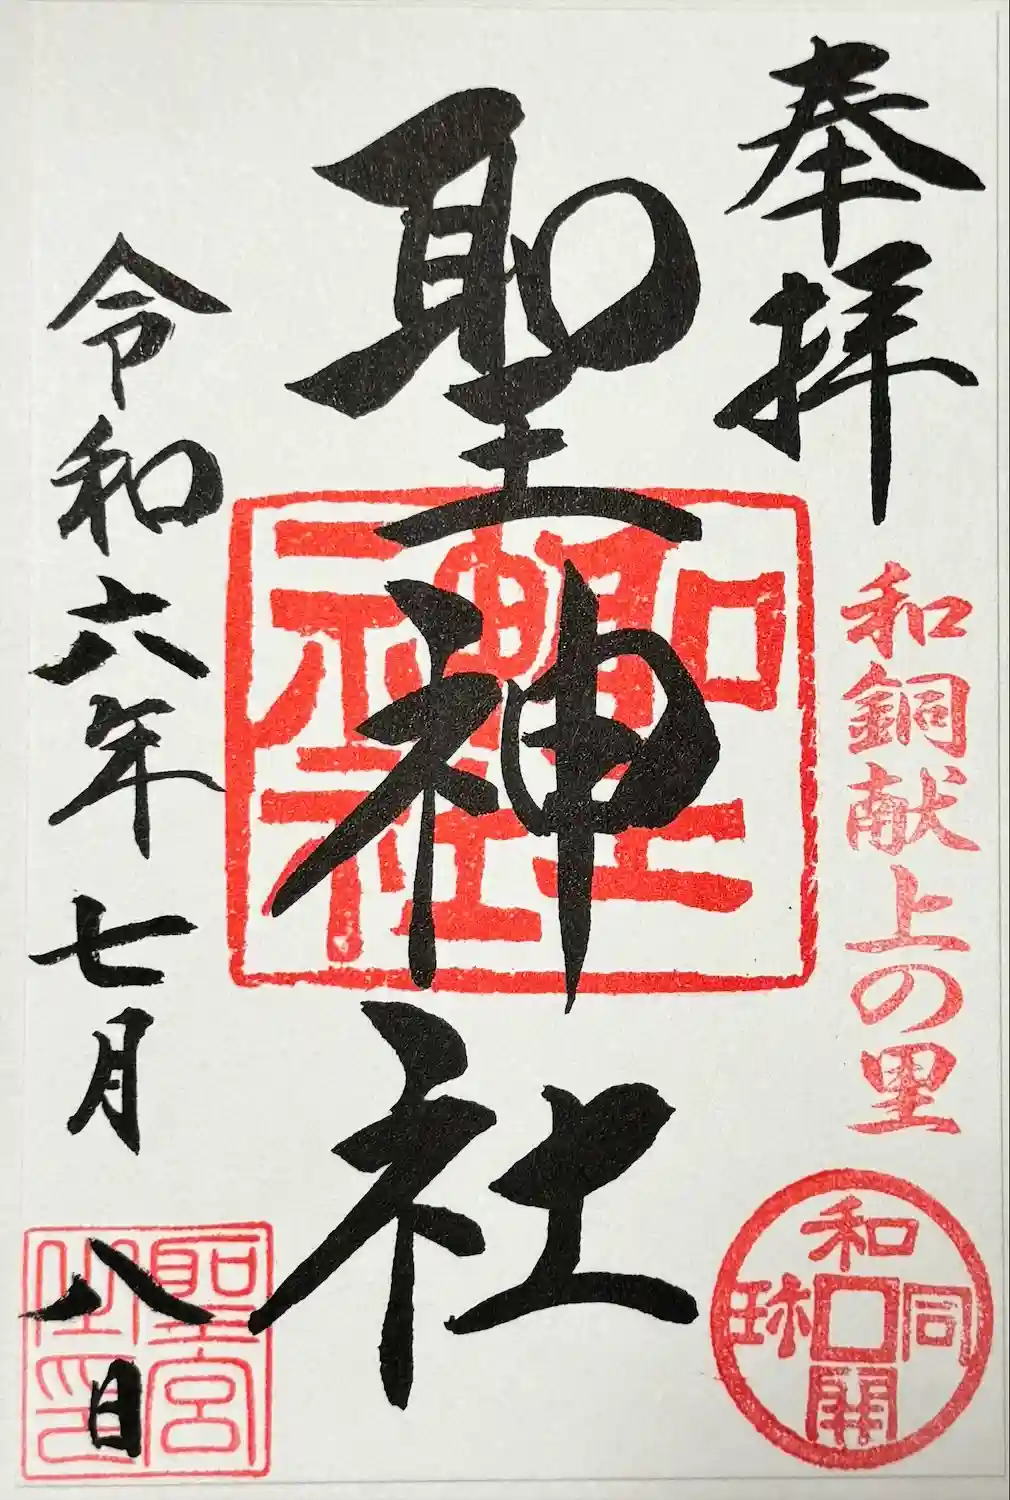 奉拝
和銅献上の里
和同開珎
聖神社
聖神社
令和六年七月八日
聖宮